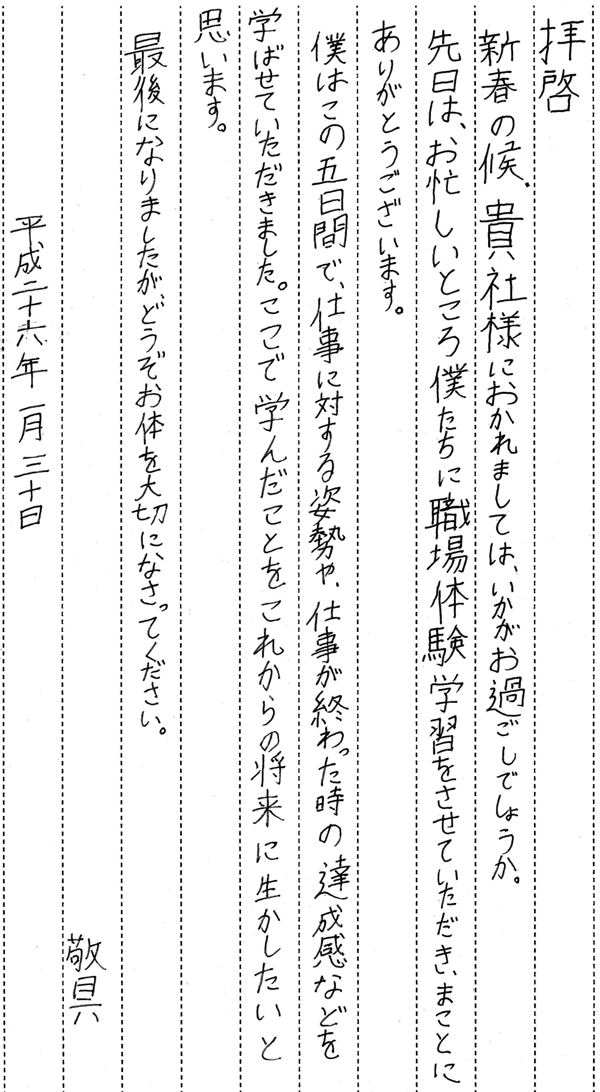 拝啓
新春の候、貴社様におかれましては、いかがお過ごしでしょうか。
先日は、お忙しいところ僕たちに職場体験学習をさせていただき、まことに
ありがとうございます。
僕はこの五日間で、仕事に対する姿勢や、仕事が終わった時の達成感などを
学ばせていただきました。ここで学んだことをこれからの将来に生かしたいと
思います。
最後になりましたが、どうぞお体を大切に、なさってください。
敬具
平成二十六年一月三十日